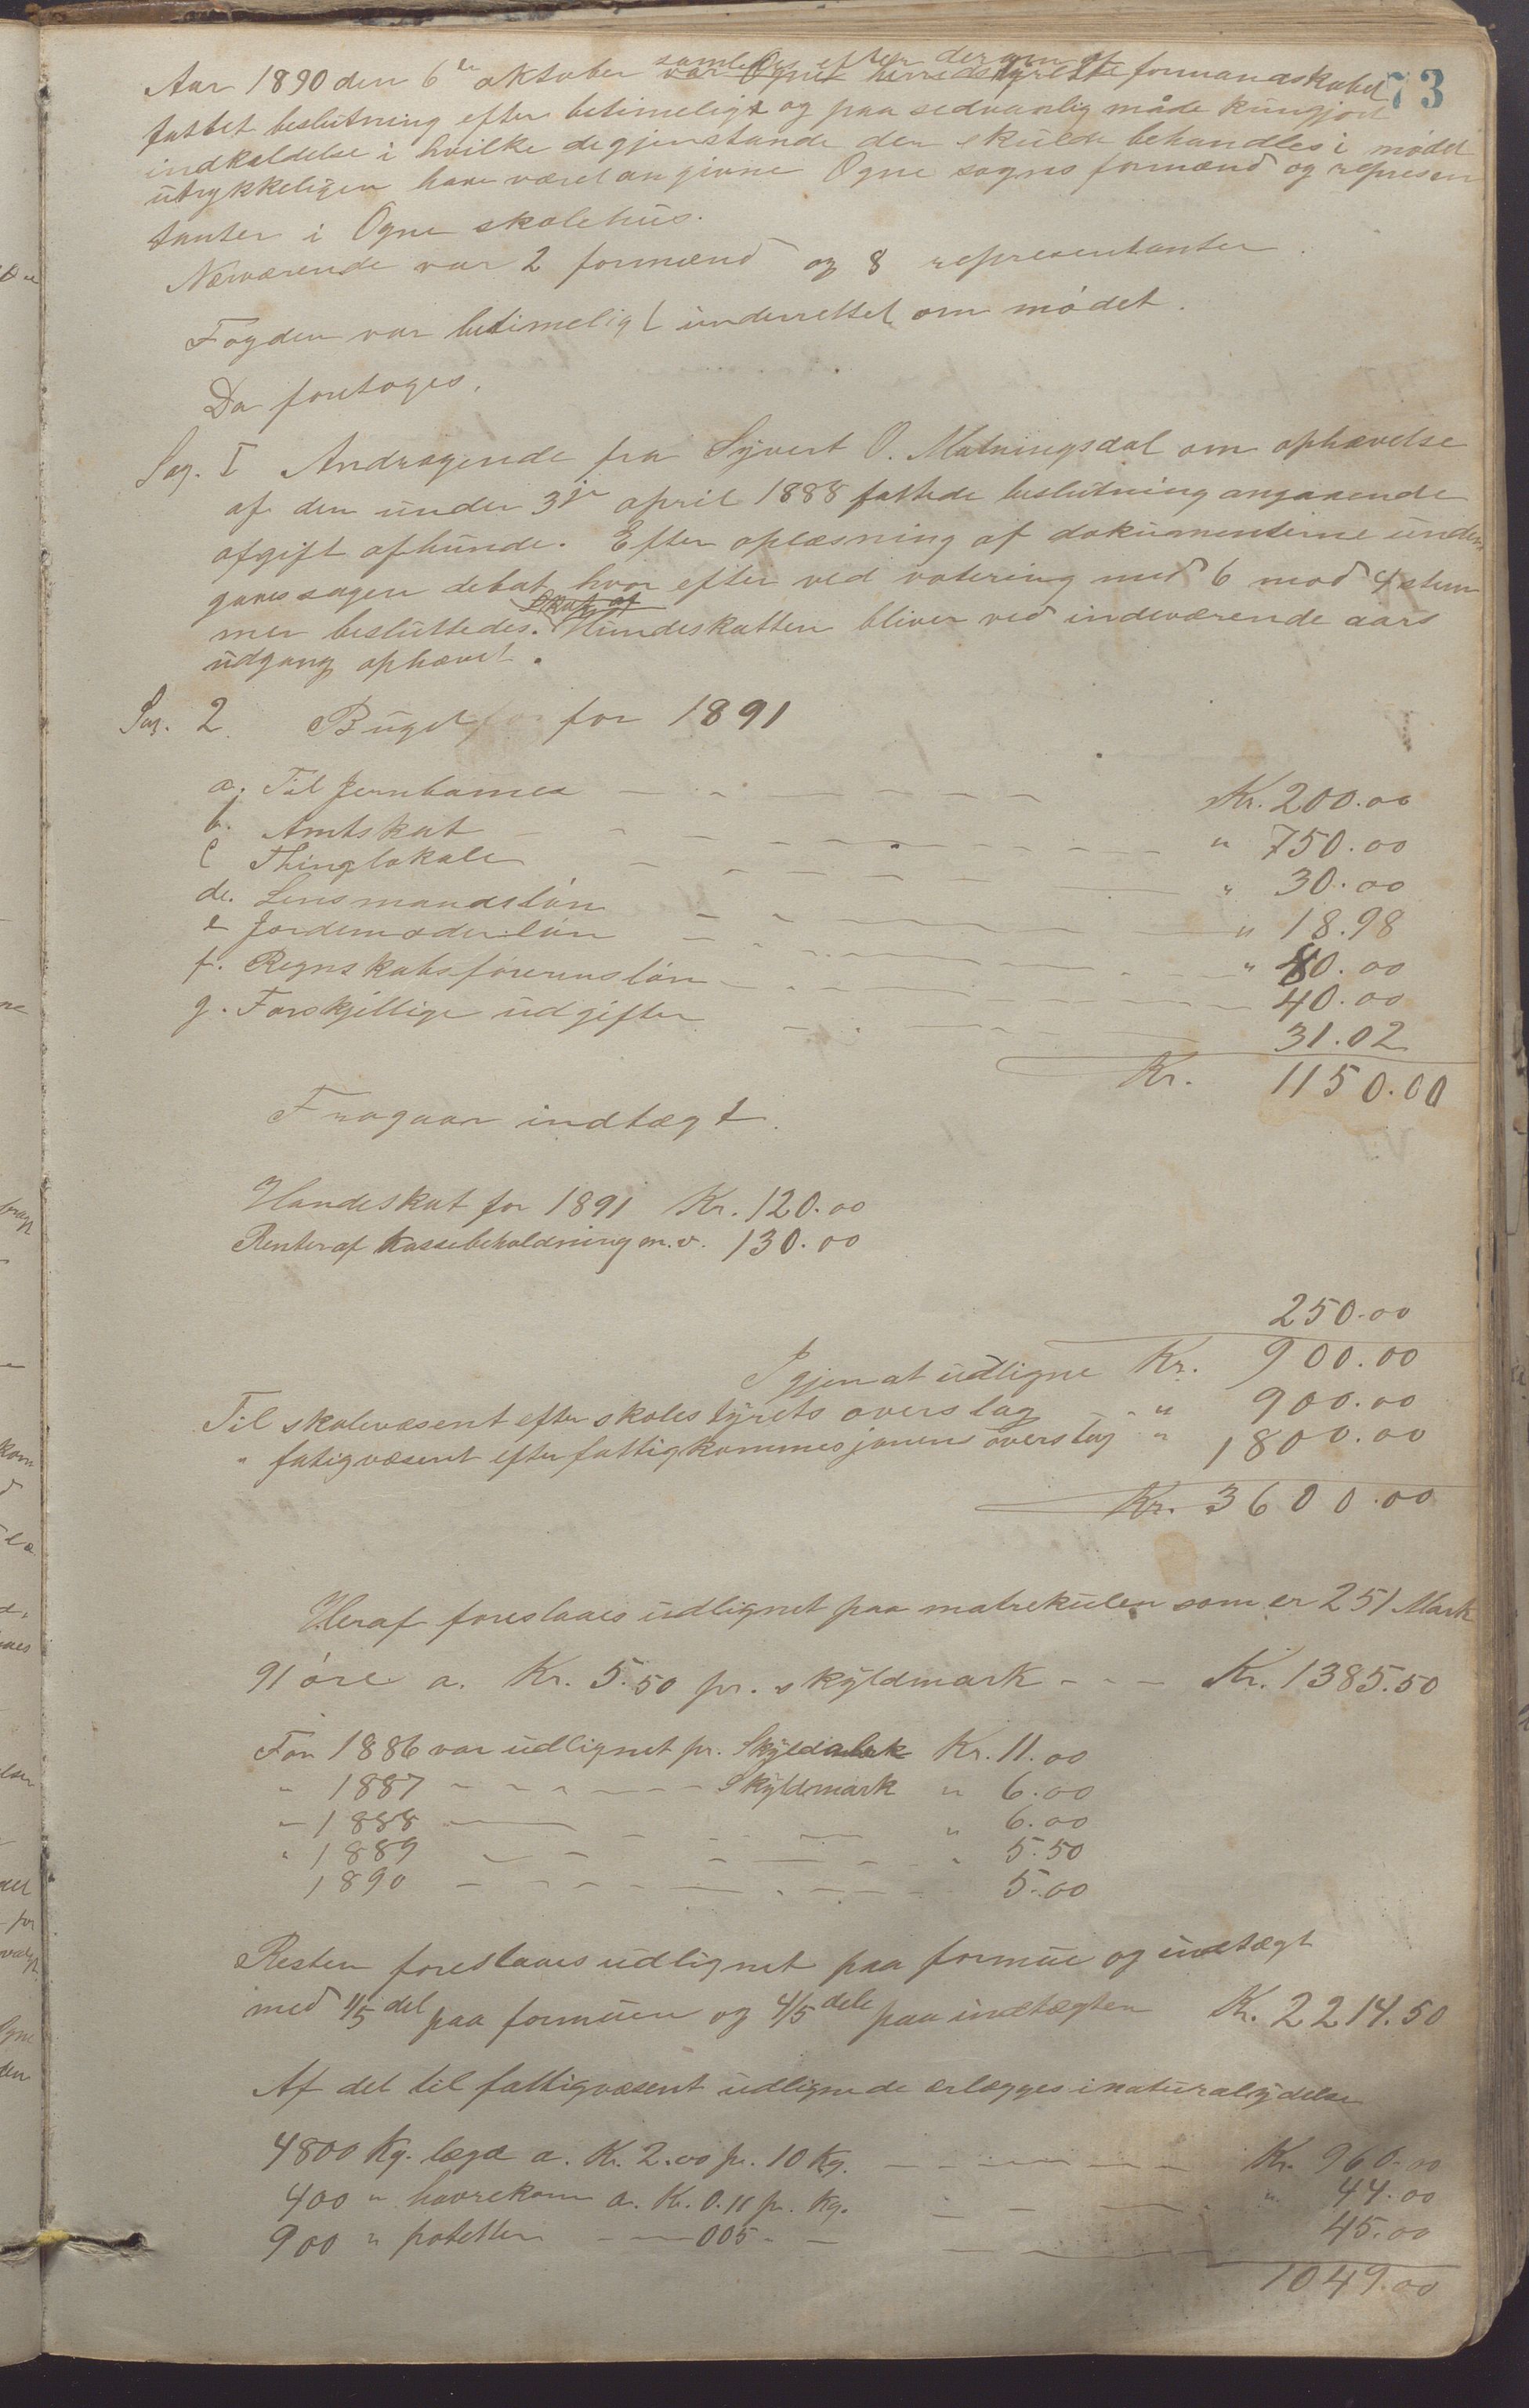 73
Aar 1890 den 6te oktober samledes efter dertil af formandskabet
fattet beslutning efter betimeligt og paa sedvanlig måde kungjort
indkaldelse i hvilke de gjenstande der skulde behandles i mødet
utrykkeligen have været angivne Ogne sogns formænd og represen
tanter i Ogne skolehus.
Nærværende var 2 formænd og 8 representanter.
Fogden var betimeligt underrettet om mødet.
Da foretoges.
Sag. I Andragende fra Syvert O. Matningsdal om ophævelse
af den under 3je april 1888 fattede beslutning angaaende
afgift af hunde. Efter oplæsning af dokumenterne under
gaves sagen debat hvor efter ved votering med 6 mod 4 stem
mer besluttedes. Hundeskatten bliver ved indeværende aars
udgang ophævet.
Sag. 2 Buget for 1891
a. Til Jernbanes Kr. 200.00
b. Amtskat " 750.00
c Thinglokale " 30.00
de. Lensmandsløn " 18.98
e Jordemoderløn " 80.00
f. Regnskabsførerensløn 40.00
g. Forskjellige udgifter 31.02
Kr. 1150.00
Fragaar indtægt.
Hundeskat for 1891 Kr. 120.00
Renter af kassebeholdning m.v. 130.00
250.00
Igjen at udligne Kr. 900.00
Til skolevæsent efter skolestyrets overslag " 900.00
" fatigvæsent efter fattigkommesjonens overslag " 1800.00
Kr. 3600.00
Heraf foreslaaes udlignet paa matrekulen som er 251 Mark
91 øre a. Kr. 5.50 pr. skyldmark - - - Kr. 1385.50
For 1886 var udlignet pr. Skyldmark Kr. 11.00
" 1887 - - - - - Skyldmark " 6.00
" 1888 " 6.00
" 1889 " 5.50
1890 5.00
Resten foreslaaes udlignet paa formue og indtægt
med 1/5 del paa formuen og 4/5 dele paa indtægten Kr. 2214.50
Af det til fattigvæsent udlignede erlægges i naturalydelse
4800 Kg. lægd a. Kr. 2.00 pr. 10 Kg. Kr. 960.00
400 " havrekorn a. Kr. 0.11 pr. Kg. " 44.00
900 " poteter - - 005 - - 45.00
1049.00